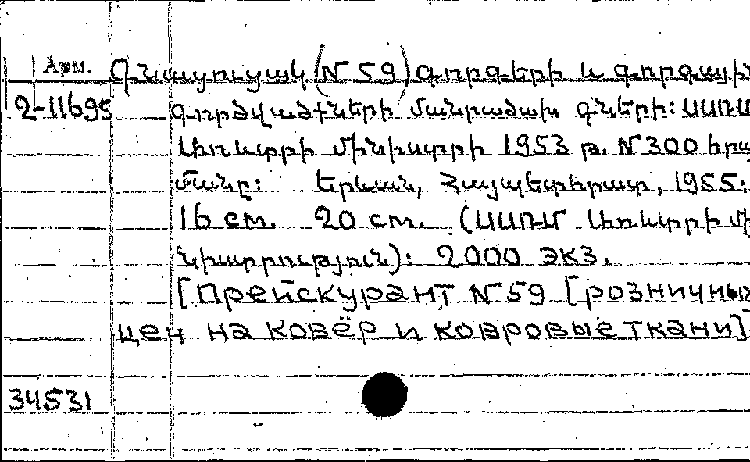 Арм. Գնացուցակ (N 59) գորգերի և գորգային
2-11695 գործվածքների մանրածախ գների: ՍՍՌՄ
Առևտրի մինիստրի 1953 թ. N 300 հրա
մանը: Երևան, Հայպետհրատ, 1955:
16 см. 20 см. (ՍՍՌՄ Առևտրի մի
նիստրություն): 2000 экз.
[Прейскурант N 59 [розничных
цен на ковёр и ковровые ткани]
34531